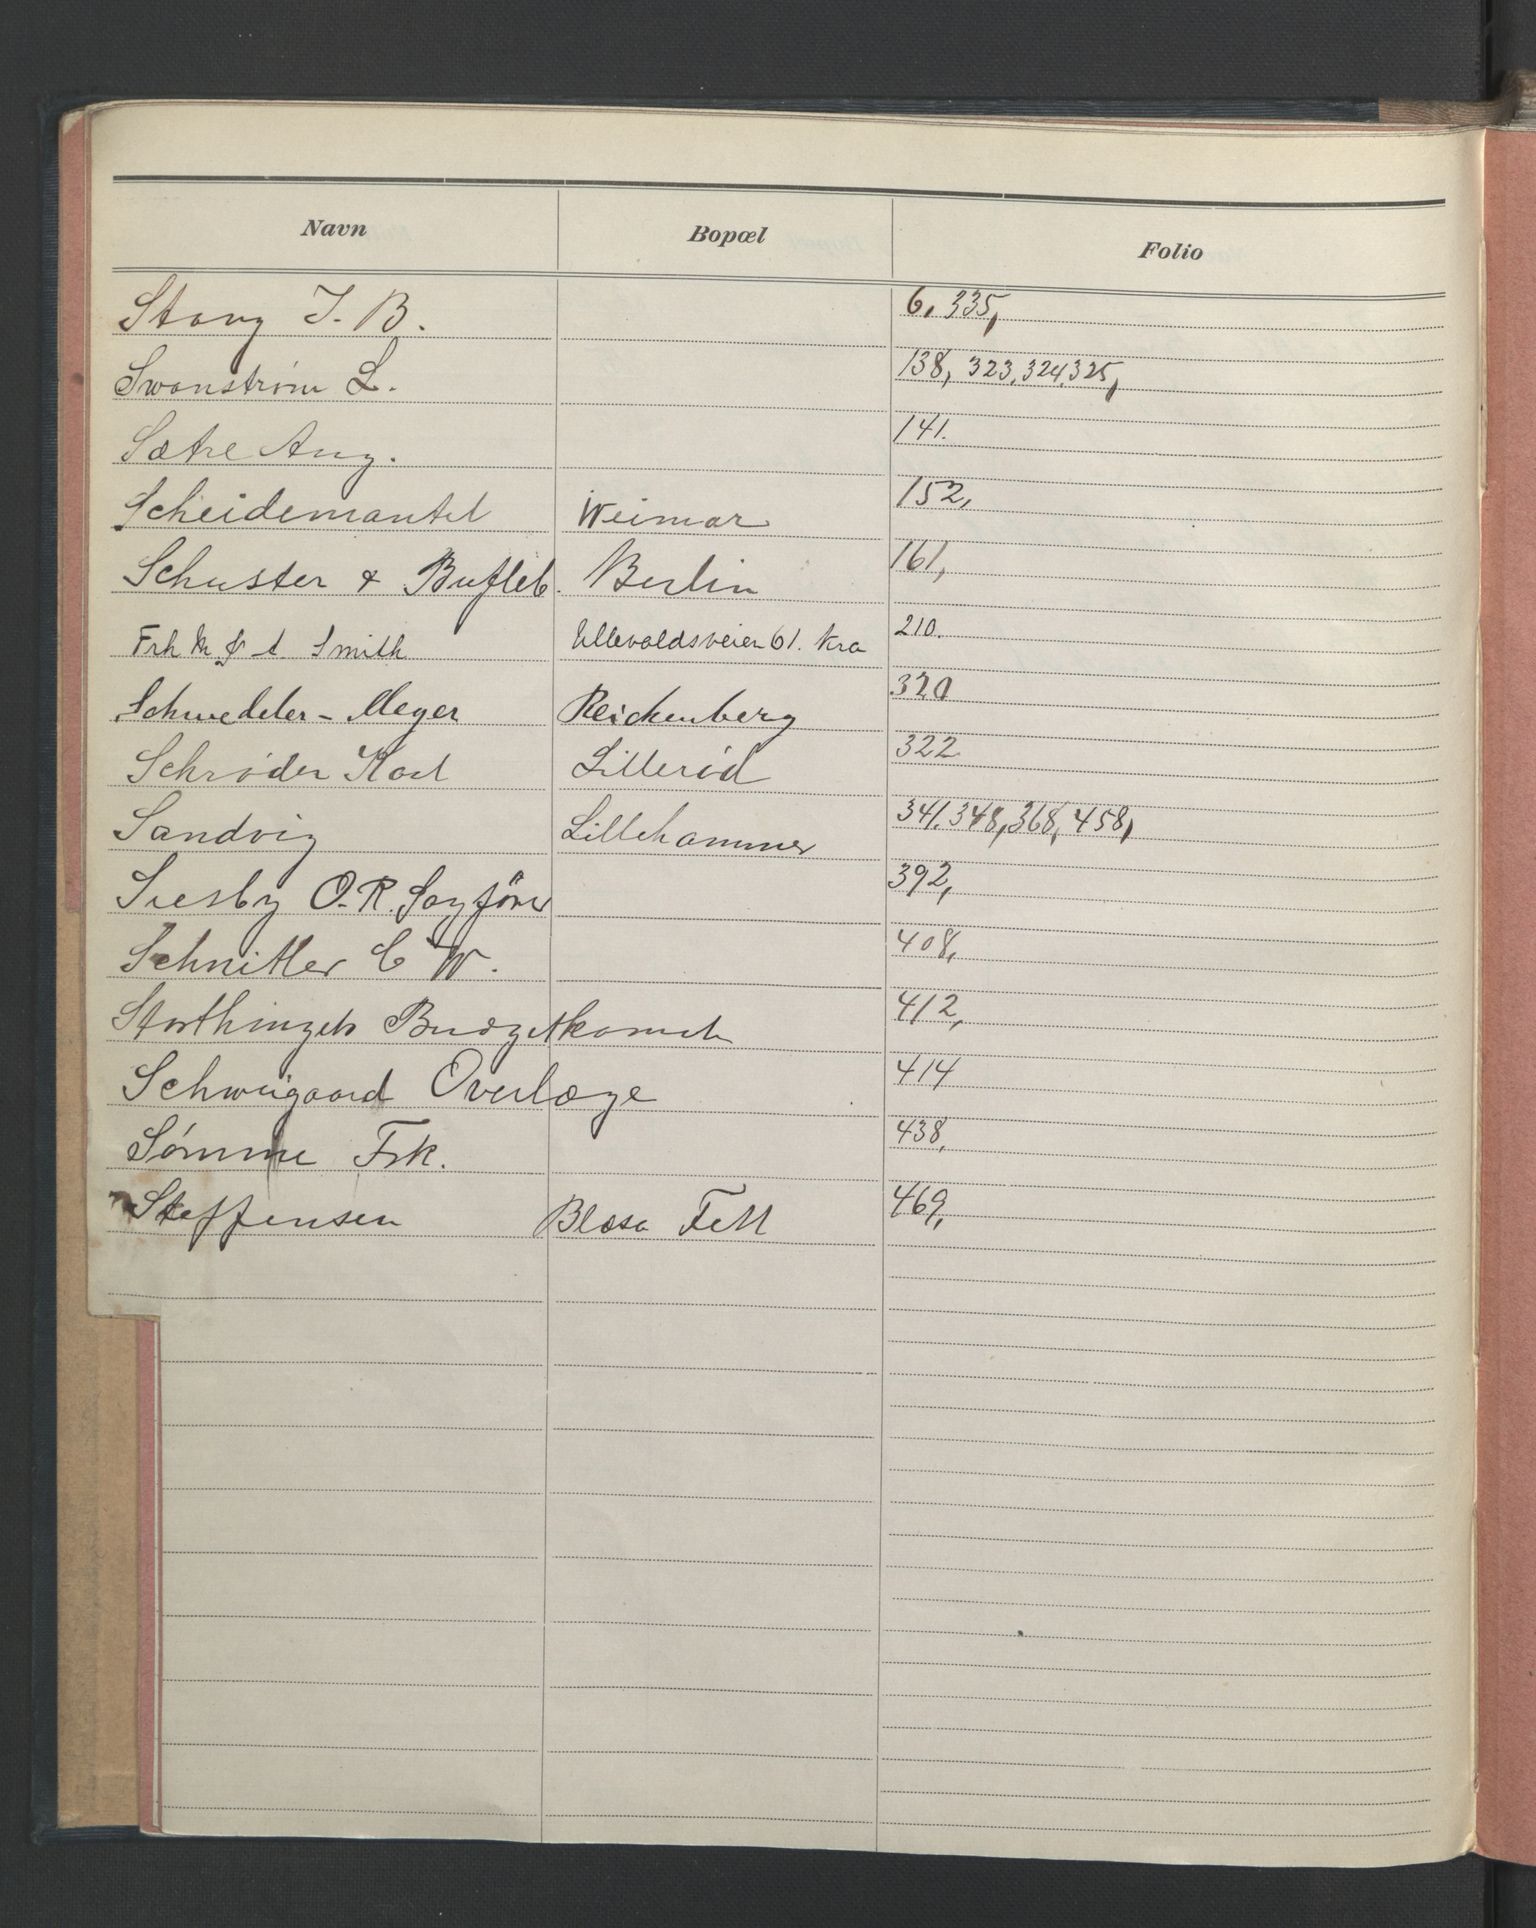 Navn Bopæl Folio
Stang J. B. 6, 335,
Swanstrøm L. 138, 323, 324, 325,
Sætre Aug. 141.
Scheidemantel Weimar 152,
Schuster & Bufleb. Berlin 161,
Frk M & A Smith Ullevoldsveien 61. Kra 210.
Schwedeler-Meyer Reichenberg 320
Schrøder Karl Lillerød 322
Sandvig Lillehammer 341. 348, 368, 458,
Siesby O. R. Sagfører 392,
Schnitler C W. 408,
Storthingets Budgetkomité 412,
Schweigaard Overlæge 414
Sømme Frk. 438,
Steffensen Blaso Fell 469,